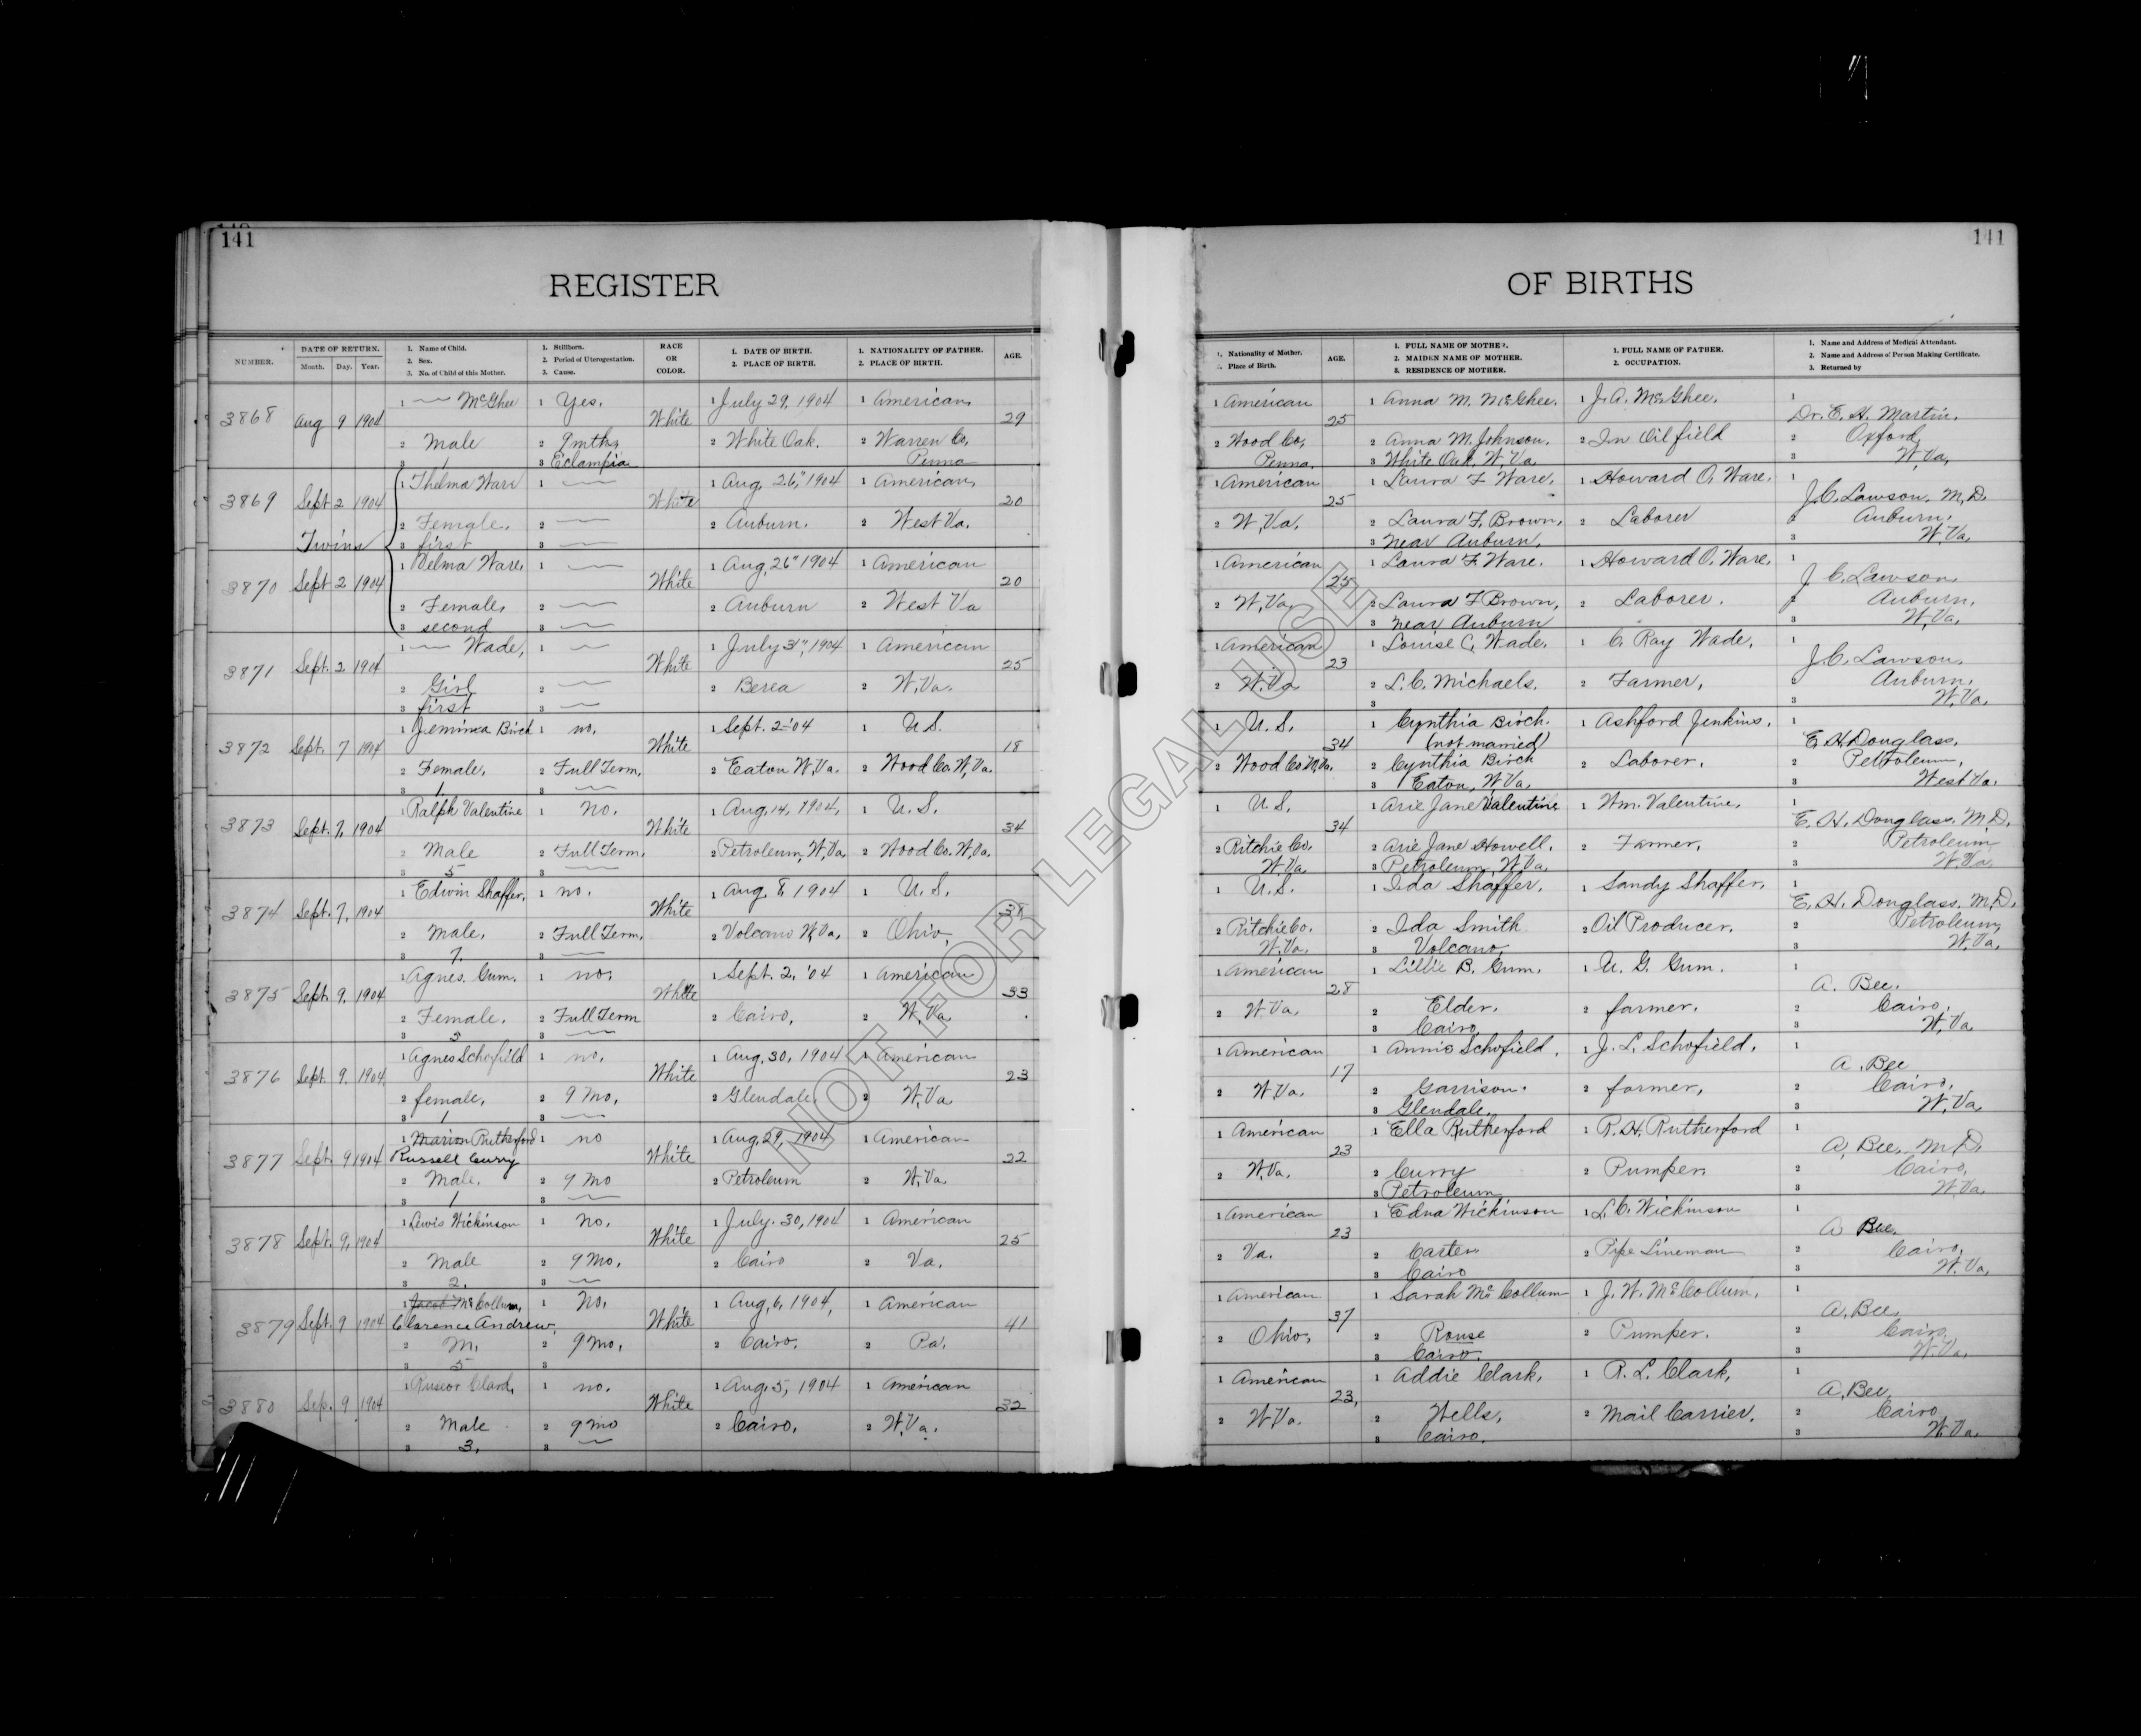 141
REGISTER
NUMBER.
DATE OF RETURN.
Month. Day. Year.
1. Name of Child.
2. Sex.
3. No. of Child of this Mother.
1. Stillborn.
2. Period of Uterogestation.
3. Cause.
RACE
OR
COLOR.
1. DATE OF BIRTH.
2. PLACE OF BIRTH.
1. NATIONALITY OF FATHER.
2. PLACE OF BIRTH.
AGE.
3868 Aug 9 1904 1 McGhee 1 Yes. White 1 July 29, 1904 1 American, 29
2 Male 2 9 mths, 2 White Oak. 2 Warren Co,
3 1 3 Eclampia Penna
3869 Sept 2 1904 1 Thelma Ware 1 White 1 Aug. 26," 1904 1 American, 20
2 Female, 2 2 Auburn. 2 West Va.
Twins 3 first 3
3870 Sept 2 1904 1 Velma Ware, 1 White 1 Aug, 26" 1904 1 American 20
2 Female, 2 2 Auburn 2 West Va
3 second 3
3871 Sept. 2 1904 1 Wade, 1 White 1 July 31", 1904 1 American 25
2 Girl 2 2 Berea 2 W. Va.
3 first 3
3872 Sept. 7 1904 1 Jemima Birch 1 no. White 1 Sept. 2-'04 1 U.S. 18
2 Female, 2 Full Term, 2 Eaton W, Va. 2 Wood Co. W, Va.
3 1. 3
3873 Sept. 7, 1904 1 Ralph Valentine 1 no. White 1 Aug, 14, 1904, 1 U.S. 34
2 Male 2 Full Term, 2 Petroleum, W, Va, 2 Wood Co. W, Va,
3 5 3
3874 Sept. 7, 1904 1 Edwin Shaffer, 1 no. White 1 Aug. 8, 1904 1 U.S. 38
2 Male, 2 Full Term, 2 Volcano W, Va, 2 Ohio,
3 7. 3
3875 Sept. 9, 1904 1 Agnes. Gum. 1 no, White 1 Sept. 2, '04 1 American 33
2 Female, 2 Full Term 2 Cairo, 2 W, Va.
3 3 3
3876 Sept. 9. 1904, 1 Agnes Schofield 1 no, White 1 Aug, 30, 1904 1 American 23
2 female, 2 9 mo, 2 Glendale, 2 W, Va
3 1 3
3877 Sept. 9 1904 1 Marion Rutherford 1 no White 1 Aug, 29, 1904 1 American 22
Russell Curry
2 Male, 2 9 mo 2 Petroleum 2 W. Va.
3 1 3
3878 Sept. 9, 1904 1 Lewis Wickinson 1 no. White 1 July. 30, 1904 1 American 25
2 Male 2 9 mo, 2 Cairo 2 Va,
3 2, 3
3879 Sept. 9 1904 1 Jacob McCollum, 1 No, White 1 Aug, 6, 1904, 1 American 41
Clarence Andrew,
2 M, 2 9 mo, 2 Cairo. 2 Pa,
3 5 3
3880 Sep. 9 1904 1 Clark, 1 no. White 1 Aug. 5, 1904 1 American 32
2 Male 2 9 mo 2 Cairo, 2 W, Va.
3 3, 3
141
OF BIRTHS
1. Nationality of Mother.
2. Place of Birth.
AGE.
1. FULL NAME OF MOTHER.
2. MAIDEN NAME OF MOTHER.
3. RESIDENCE OF MOTHER.
1. FULL NAME OF FATHER.
2. OCCUPATION.
1. Name and Address of Medical Attendant.
2. Name and Address of Person Making Certificate.
3. Returned by
1 American 25 1 Anna M. McGhee. 1 J. A. McGhee. 1 Dr. E. H. Martin.
2 Wood Co, 2 Anna M. Johnson. 2 In Oil field 2 Oxford,
Penna. 3 White Oak, W, Va. 3 W, Va,
1 American 25 1 Laura F Ware. 1 Howard O. Ware. 1 J. C. Lawson, M, D.
2 W, Va, 2 Laura F, Brown, 2 Laborer 2 Auburn,
3 near Auburn, 3 W, Va,
1 American 25 1 Laura F. Ware. 1 Howard O. Ware, 1 J. C. Lawson,
2 W, Va, 2 Laura F Brown, 2 Laborer. 2 Auburn,
3 near Auburn 3 W, Va,
1 American 23 1 Louise C, Wade. 1 C. Ray Wade, 1 J. C. Lawson,
2 W. Va 2 L. C. Michaels. 2 Farmer, 2 Auburn,
3 3 W, Va,
1 U.S. 34 1 Cynthia Birch. 1 Ashford Jenkins, 1 E. H. Douglass,
(not married)
2 Wood Co W, Va. 2 Cynthia Birch 2 Laborer. 2 Petroleum,
3 Eaton, W, Va, 3 West Va.
1 U.S. 34 1 Arie Jane Valentine 1 Wm. Valentine, 1 E. H. Douglass, M, D,
2 Ritchie Co. 2 Arie Jane Howell, 2 Farmer, 2 Petroleum
W. Va. 3 Petroleum, W, Va, 3 W, Va
1 U.S. 1 Ida Shaffer, 1 Sandy Shaffer, 1 E. H. Douglass, M, D,
2 Ritchie Co. 2 Ida Smith 2 Oil Producer, 2 Petroleum,
W. Va. 3 Volcano, 3 W, Va,
1 American 28 1 Lillie B. Gum. 1 U. G. Gum. 1 A. Bee.
2 W. Va, 2 Elder. 2 farmer. 2 Cairo,
3 Cairo 3 W, Va
1 American 17 1 Annie Schofield, 1 J. L. Schofield, 1 A. Bee
2 W. Va, 2 Garrison. 2 farmer, 2 Cairo,
3 Glendale, 3 W, Va,
1 American 23 1 Ella Rutherford 1 R. H. Rutherford 1 A, Bee, M, D
2 W. Va. 2 Curry 2 Pumper, 2 Cairo,
3 Petroleum 3 W, Va,
1 American 23 1 Edna Wickinson 1 L. C. Wickinson 1 A Bee,
2 Va. 2 Carter, 2 Pipe Lineman 2 Cairo,
3 Cairo 3 W. Va,
1 American 37 1 Sarah McCollum 1 J. W. McCollum, 1 A, Bee,
2 Ohio, 2 Rouse 2 Pumper. 2 Cairo,
3 Cairo. 3 W. Va,
1 American 23, 1 Addie Clark, 1 R. L. Clark, 1 A, Bee,
2 W, Va. 2 Wells, 2 Mail Carrier. 2 Cairo
3 Cairo. 3 W. Va,
NOT FOR LEGAL USE